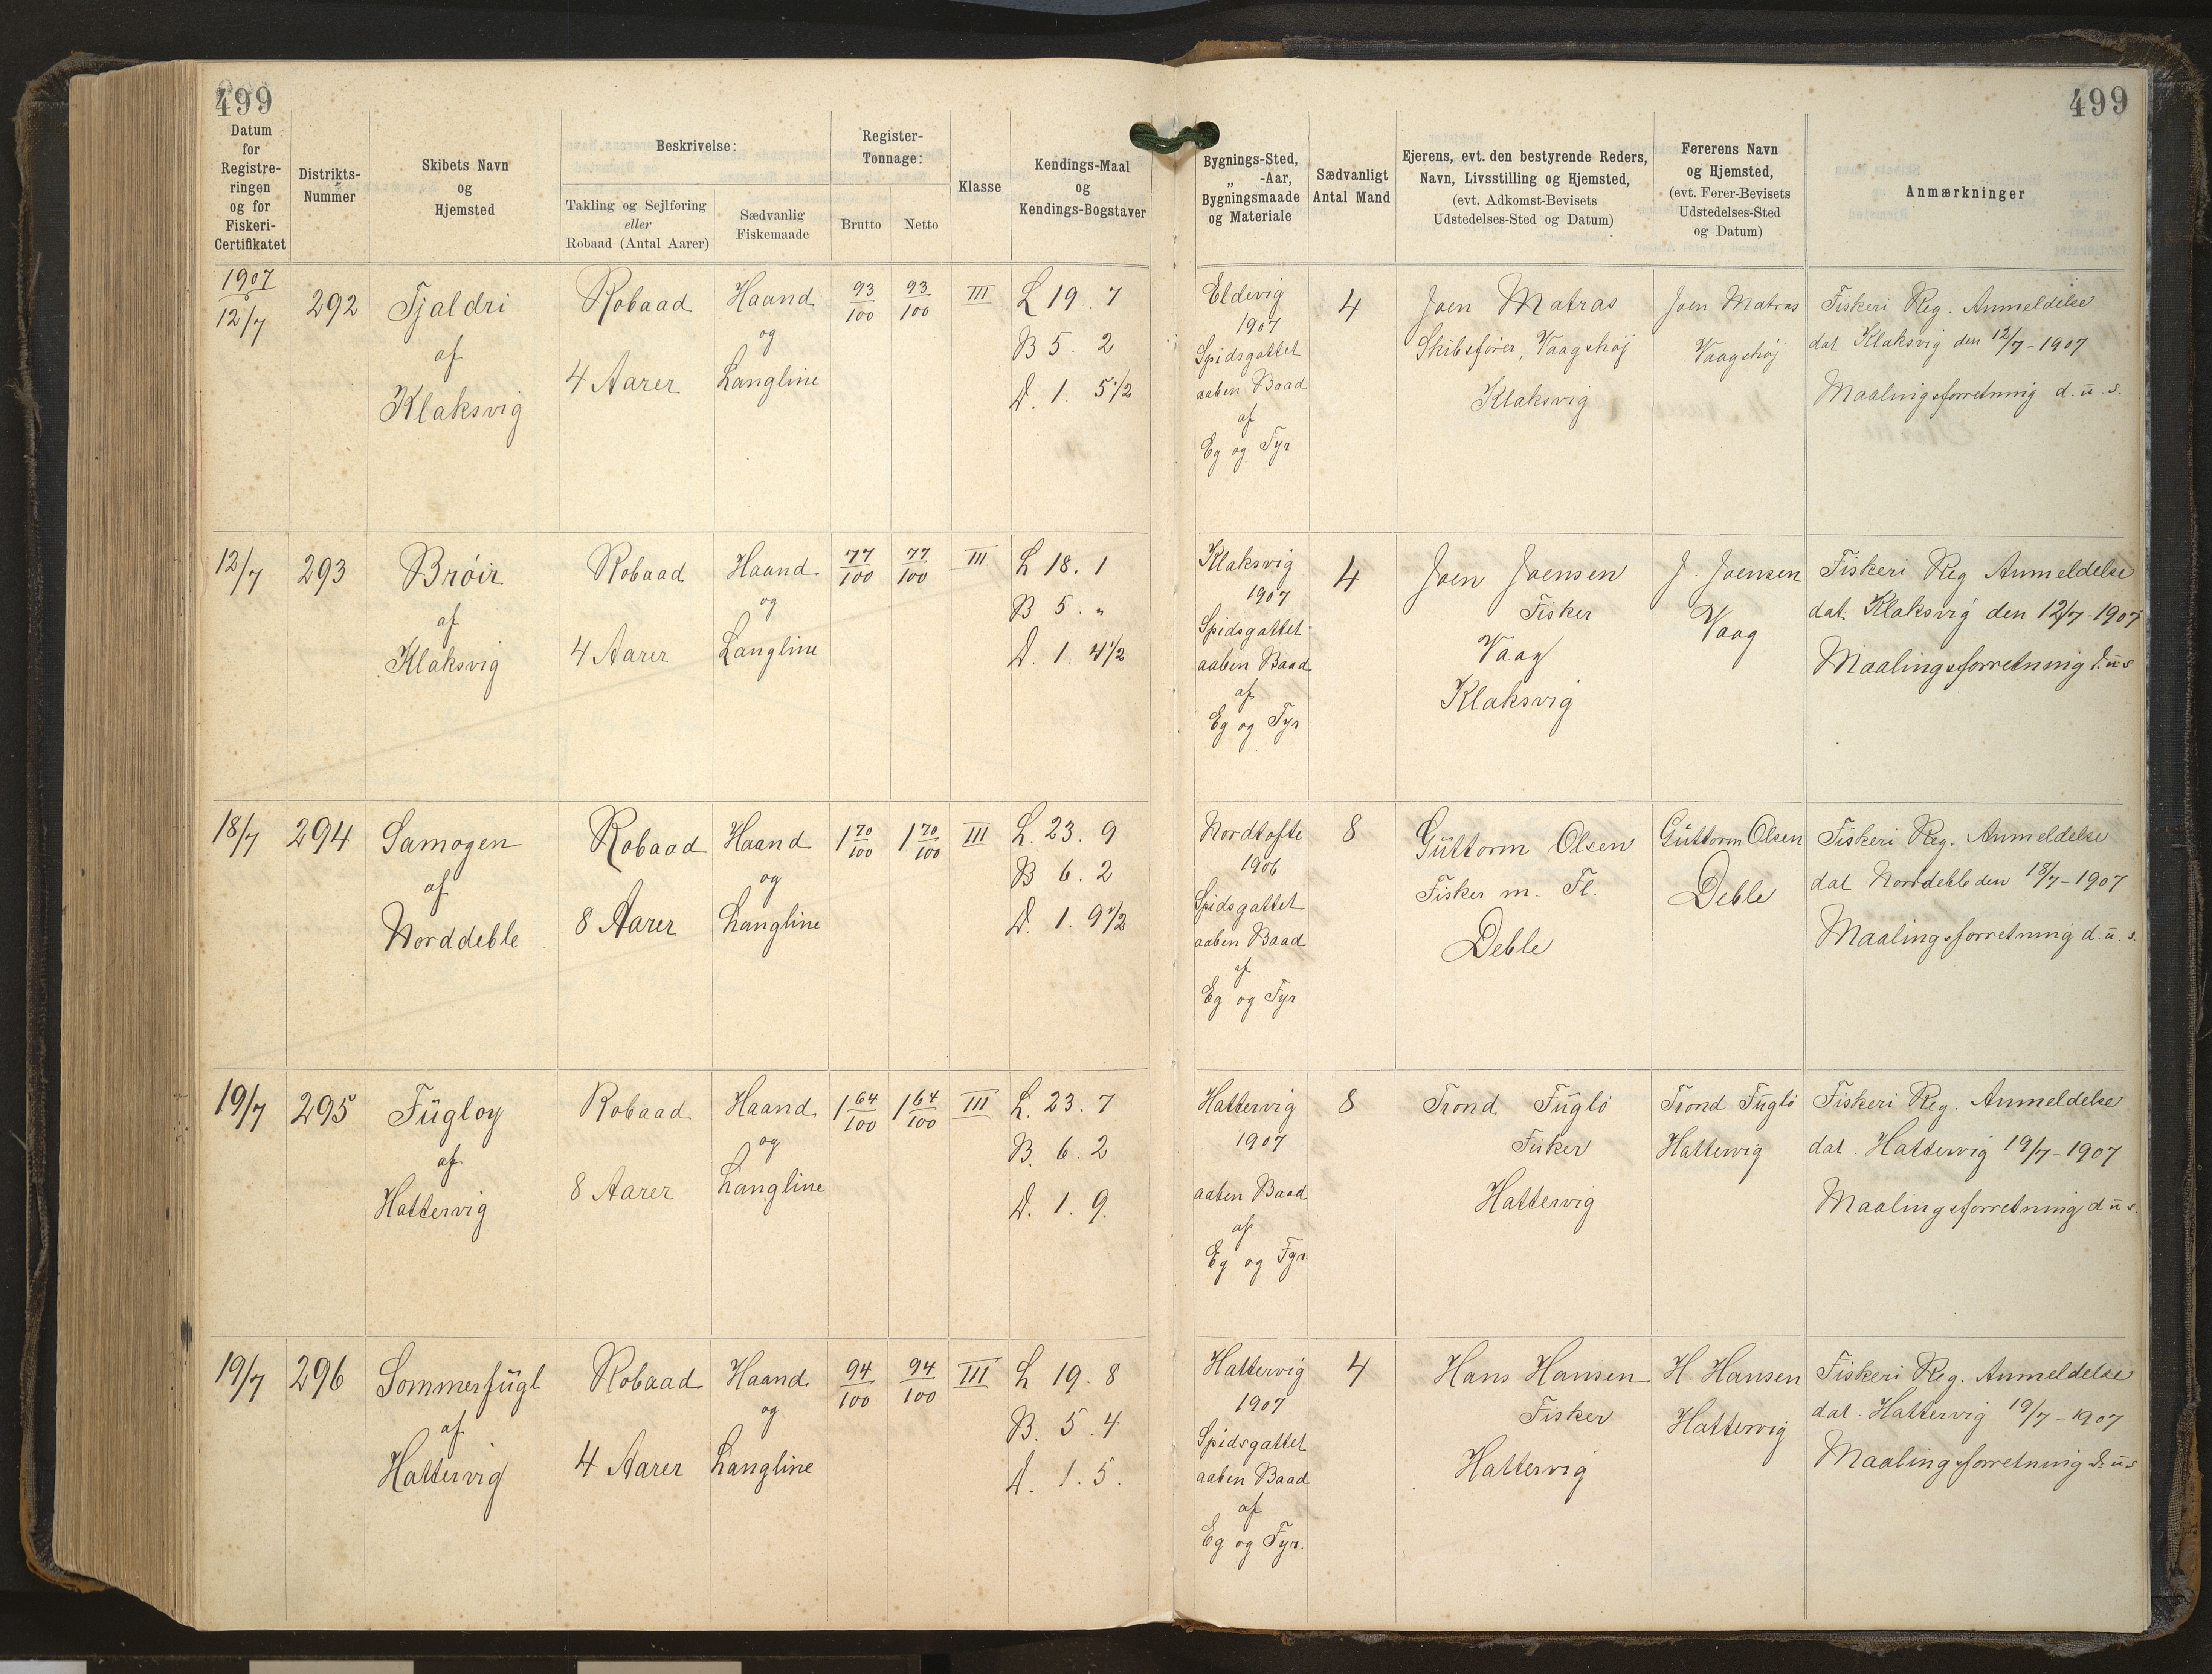 499
499
Datum for Registre-ringen og for Fiskeri-Certifikatet
Distrikts-Nummer
Skibets Navn og Hjemsted
Beskrivelse:
Takling og Sejlføring eller Robaad (Antal Aarer)
Sædvanlig Fiskemaade
Register-Tonnage:
Brutto
Netto
Klasse
Kendings-Maal og Kendings-Bogstaver
Bygnings-Sted, „ -Aar, Bygningsmaade og Materiale
Sædvanligt Antal Mand
Ejerens, evt. den bestyrende Reders, Navn, Livsstilling og Hjemsted, (evt. Adkomst-Bevisets Udstedelses-Sted og Datum)
Førerens Navn og Hjemsted, (evt. Fører-Bevisets Udstedelses-Sted og Datum)
Anmærkninger
1907
12/7
292
Tjaldri
af
Klaksvig
Robaad
4 Aarer
Haand
og
Langline
93/100
93/100
III
L 19. 7
B 5. 2
D. 1. 5 1/2
Eldevig
1907
Spidsgattet
aaben Baad
af
Eg og Fyr
4
Joen Matras
Skibsfører, Vaagshøj
Klaksvig
Joen Matras
Vaagshøj
Fiskeri Reg. Anmeldelse
dat Klaksvig den 12/7-1907
Maalingsforretning d. u. s.
12/7
293
Brøir
af
Klaksvig
Robaad
4 Aarer
Haand
og
Langline
77/100
77/100
III
L 18. 1
B 5. „
D. 1. 4 1/2
Klaksvig
1907
Spidsgattet
aaben Baad
af
Eg og Fyr
4
Joen Joensen
Fisker
Vaag
Klaksvig
J. Joensen
Vaag
Fiskeri Reg Anmeldelse
dat. Klaksvig den 12/7-1907
Maalingsforretning d. u s
18/7
294
Samogen
af
Norddeble
Robaad
8 Aarer
Haand
og
Langline
1 70/100
1 70/100
III
L. 23. 9
B 6. 2
D. 1. 9 1/2
Nordtofte
1906
Spidsgattet
aaben Baad
af
Eg og Fyr
8
Guttorm Olsen
Fisker m. Fl.
Deble
Guttorm Olsen
Deble
Fiskeri Reg. Anmeldelse
dat Norddeble den 18/7-1907
Maalingsforretning d. u. s.
19/7
295
Fugloy
af
Hattervig
Robaad
8 Aarer
Haand
og
Langline
1 64/100
1 64/100
III
L. 23. 7
B. 6. 2
D. 1. 9.
Hattervig
1907
aaben Baad
af
Eg og Fyr
8
Trond Fuglø
Fisker
Hattervig
Trond Fuglø
Hattervig
Fiskeri Reg. Anmeldelse
dat. Hattervig 19/7-1907
Maalingsforretning d u s.
19/7
296
Sommerfugl
af
Hattervig
Robaad
4 Aarer
Haand
og
Langline
94/100
94/100
III
L 19. 8
B. 5. 4
D. 1. 5.
Hattervig
1907
Spidsgattet
aaben Baad
af
Eg og Fyr.
4
Hans Hansen
Fisker
Hattervig
H Hansen
Hattervig
Fiskeri Reg. Anmeldelse
dat. Hattervig 19/7-1907
Maalingsforretning d. u s